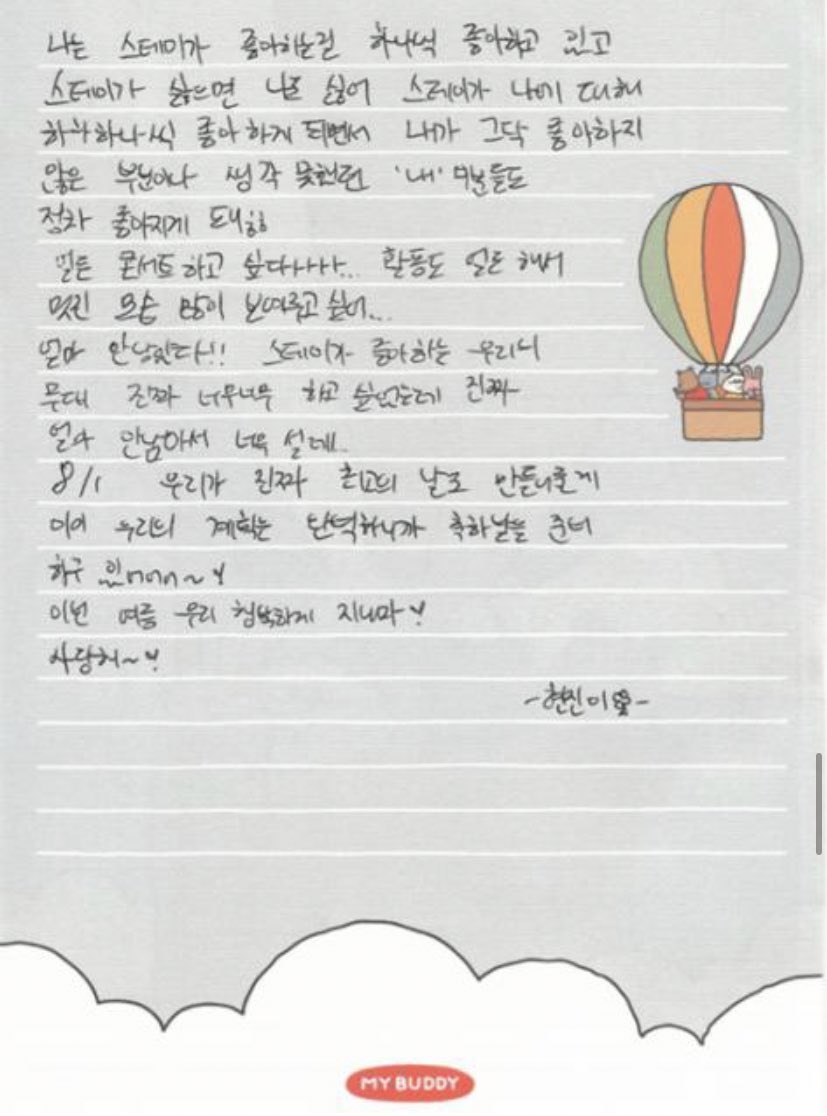 나는 스테이가 좋아하는걸 하나씩 좋아하고 있고
스테이가 싫으면 나도 싫어 스테이가 나에 대해
하나하나씩 좋아하게 되면서 내가 그닥 좋아하지
않은 부분이나 생각 못했던 '내' 부분들도
점차 좋아지게 돼ㅎㅎ
얼른 콘서트하고 싶다ㅏㅏㅏㅏ... 활동도 얼른 해서
멋진 모습 많이 보여주고 싶어...
얼마 안남았다!! 스테이가 좋아하는 우리의
무대 진짜 너무너무 하고 싶었는데 진짜
얼마 안남아서 너무 설레..
8/1 우리가 진짜 최고의 날로 만들어줄게
이미 우리의 계획은 완벽하니까 축하받을 준비
하구 있어어어~♥
이번 여름 우리 행복하게 지내자♥
사랑해~♥
-현진이-
MY BUDDY